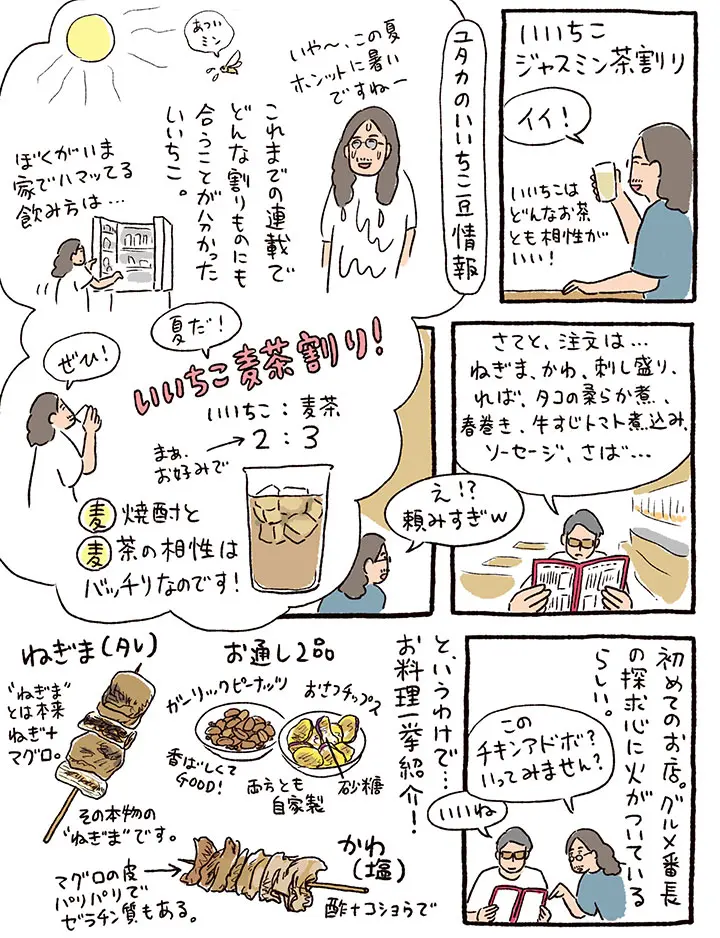 いいちこ
ジャスミン茶割り
イイ！
いいちこは
どんなお茶
とも相性が
いい！
ユタカのいいちこ豆情報
いや〜、この夏
ホンットに暑い
ですねー
あつい
ミン
これまでの連載で
どんな割りものにも
合うことが分かった
いいちこ。
ぼくがいま
家でハマッてる
飲み方は…
夏だ！
ぜひ！
いいちこ麦茶割り！
いいちこ：麦茶
2：3
まぁ、
お好みで
麦焼酎と
麦茶の相性は
バッチリなのです！
さてと、注文は…
ねぎま、かわ、刺し盛り、
ればー、タコの柔らか煮、
春巻き、牛すじトマト煮込み、
ソーセージ、さば…
え！？
頼みすぎw
初めてのお店。グルメ番長
の探求心に火がついている
らしい。
この
チキンアドボ？
いってみません？
いいね
と、いうわけで…
お料理一挙紹介！
お通し2品
ガーリックピーナッツ
香ばしくて
GOOD！
おさつチップス
砂糖
両方とも
自家製
ねぎま（タレ）
"ねぎま"
とは本来
ねぎ+
マグロ。
その本物の
"ねぎま"です。
かわ
（塩）
マグロの皮
パリパリで
ゼラチン質もある。
酢+コショウで